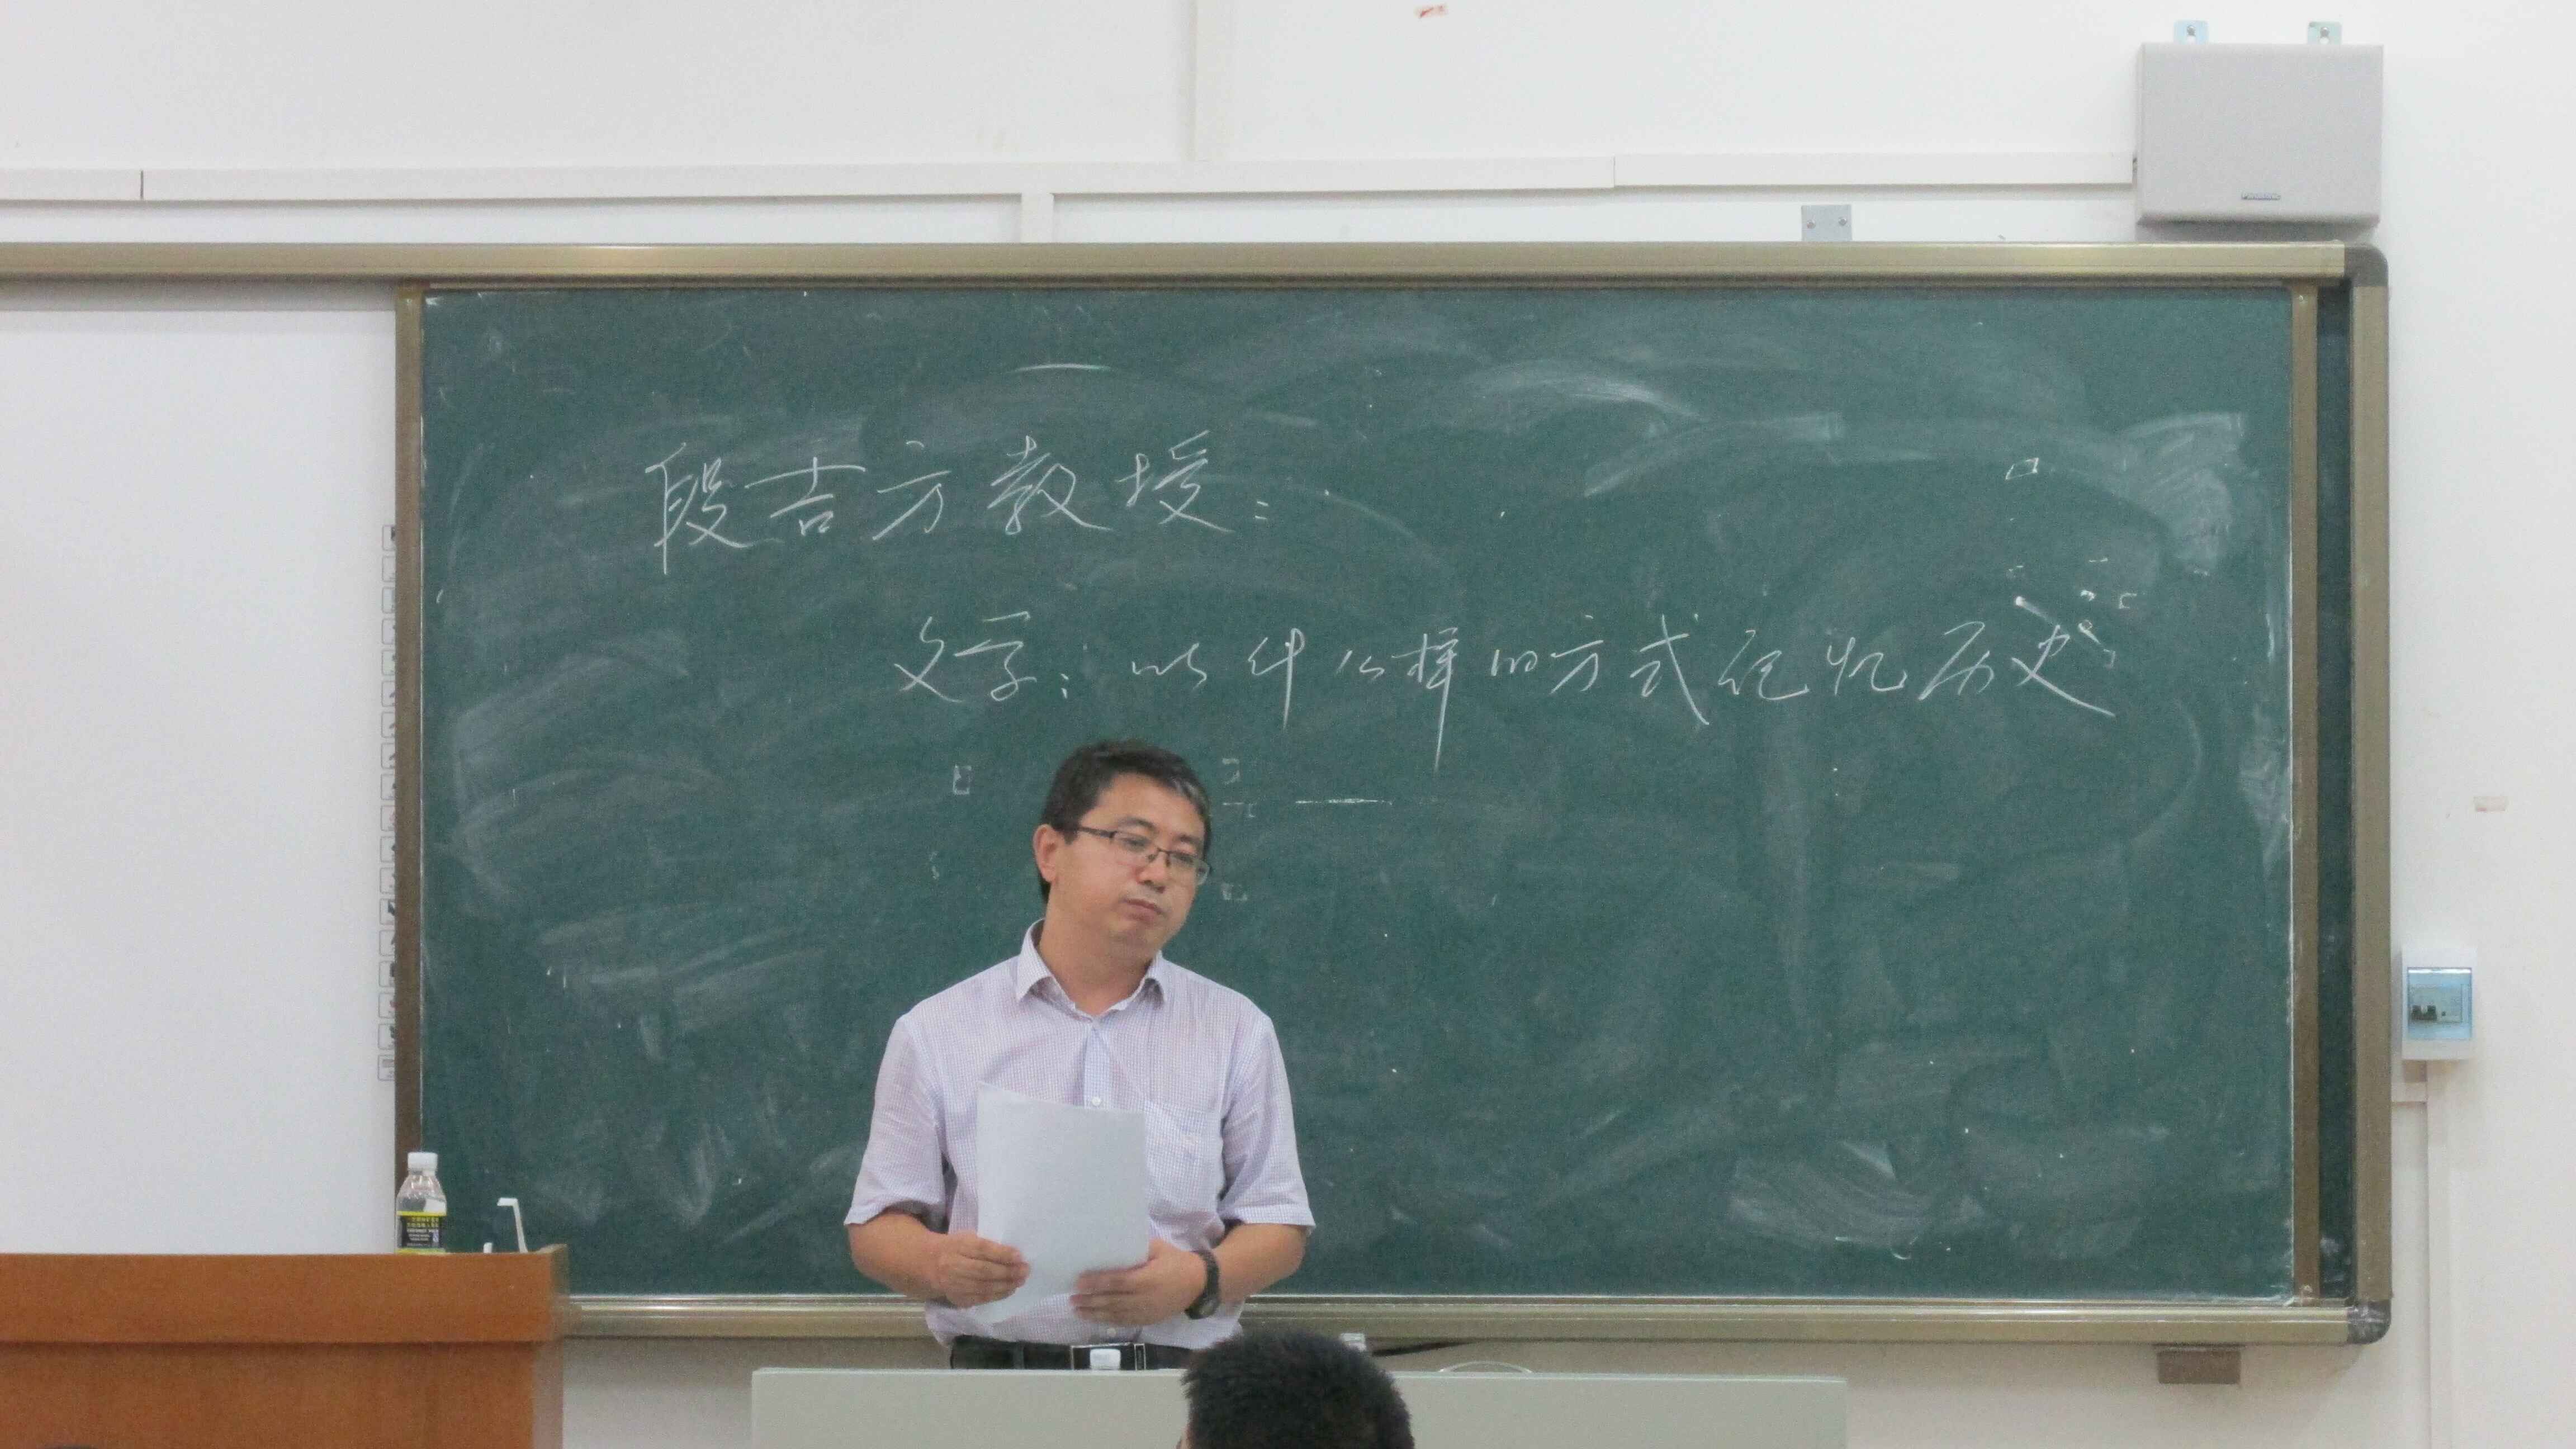 段吉方教授：
文学：以什么样的方式记忆历史